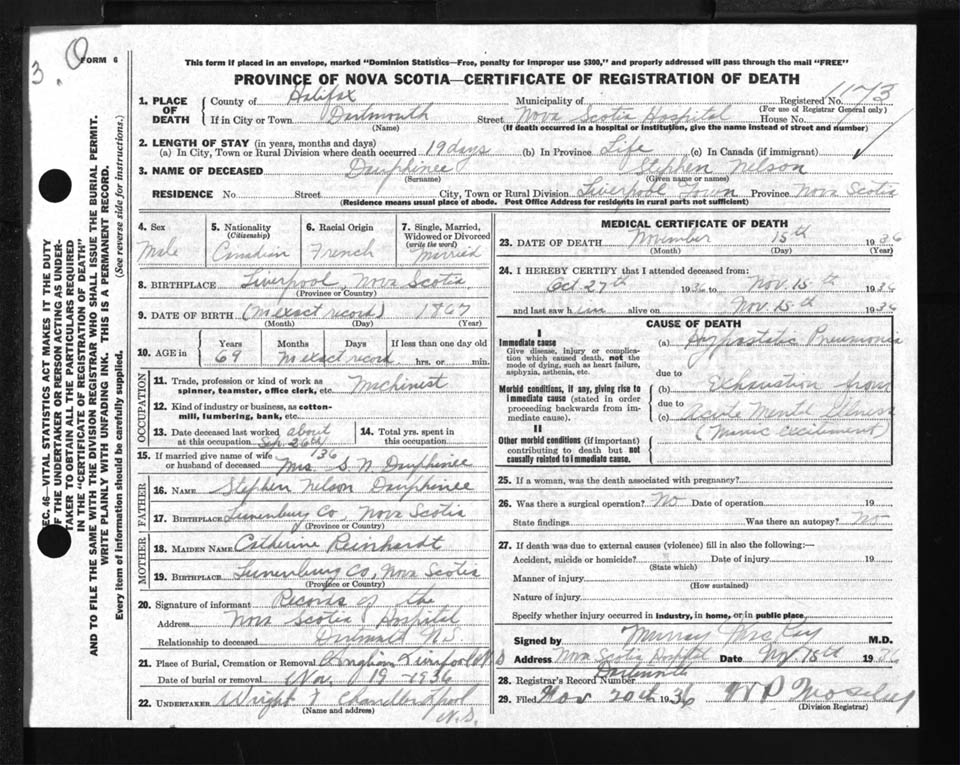 3. O
FORM 6
This form if placed in an envelope, marked "Dominion Statistics—Free, penalty for improper use $300," and properly addressed will pass through the mail "FREE"
PROVINCE OF NOVA SCOTIA—CERTIFICATE OF REGISTRATION OF DEATH
1. PLACE OF DEATH County of Halifax Municipality of Registered No. 1173
(For use of Registrar General only)
If in City or Town Dartmouth Street Nova Scotia Hospital House No.
(Name) (If death occurred in a hospital or institution, give the name instead of street and number)
2. LENGTH OF STAY (in years, months and days)
(a) In City, Town or Rural Division where death occurred 19 days (b) In Province Life (c) In Canada (if immigrant)
3. NAME OF DECEASED Dauphinee Stephen Nelson
(Surname) (Given name or names)
RESIDENCE No Street City, Town or Rural Division Liverpool Town Province Nova Scotia
(Residence means usual place of abode. Post Office Address for residents in rural parts not sufficient)
4. Sex 5. Nationality (Citizenship) 6. Racial Origin 7. Single, Married, Widowed or Divorced (write the word)
Male Canadian French Married
8. BIRTHPLACE Liverpool, Nova Scotia
(Province or Country)
9. DATE OF BIRTH (No exact record) 1867
(Month) (Day) (Year)
10. AGE in Years Months Days If less than one day old
69 No exact record hrs. or min.
OCCUPATION
11. Trade, profession or kind of work as spinner, teamster, office clerk, etc. Machinist
12. Kind of industry or business, as cotton-mill, lumbering, bank, etc.
13. Date deceased last worked at this occupation about Sep. 26th '36
14. Total yrs. spent in this occupation
15. If married give name of wife or husband of deceased Mrs. S N Dauphinee
FATHER
16. NAME Stephen Nelson Dauphinee
17. BIRTHPLACE Lunenburg Co, Nova Scotia
(Province or Country)
MOTHER
18. MAIDEN NAME Catherine Reinhardt
19. BIRTHPLACE Lunenburg Co, Nova Scotia
(Province or Country)
20. Signature of informant Records of the
Address Nova Scotia Hospital
Relationship to deceased N.S.
21. Place of Burial, Cremation or Removal Liverpool N S
Date of burial or removal Nov. 19 -1936
22. UNDERTAKER Wright & Chandler
N.S.
(Name and address)
MEDICAL CERTIFICATE OF DEATH
23. DATE OF DEATH November 15th 1936
(Month) (Day) (Year)
24. I HEREBY CERTIFY that I attended deceased from:
Oct 27th 1936 to Nov. 15th 1936
and last saw him alive on Nov 15th 1936
CAUSE OF DEATH
I
Immediate cause
Give disease, injury or complication which caused death, not the mode of dying, such as heart failure, asphyxia, asthenia, etc.
(a) Hypostatic Pneumonia
due to
Morbid conditions, if any, giving rise to immediate cause (stated in order proceeding backwards from immediate cause).
(b) Exhaustion from
due to
(c) Acute Mental Illness
(Manic excitement)
II
Other morbid conditions (if important) contributing to death but not causally related to immediate cause.
25. If a woman, was the death associated with pregnancy?
26. Was there a surgical operation? No Date of operation 19
State findings Was there an autopsy? No
27. If death was due to external causes (violence) fill in also the following:—
Accident, suicide or homicide? Date of injury 19
(State which)
Manner of injury
(How sustained)
Nature of injury
Specify whether injury occurred in industry, in home, or in public place
Signed by Murray MacKay M.D.
Address Nova Scotia Hospital Date Nov 15th 1936
Dartmouth
28. Registrar's Record Number
29. Filed Nov 20th 1936 W P Moseley
(Division Registrar)
SEC. 46—VITAL STATISTICS ACT MAKES IT THE DUTY
OF THE UNDERTAKER OR PERSON ACTING AS UNDERTAKER TO OBTAIN ALL THE PARTICULARS REQUIRED
IN THE "CERTIFICATE OF REGISTRATION OF DEATH"
AND TO FILE THE SAME WITH THE DIVISION REGISTRAR WHO SHALL ISSUE THE BURIAL PERMIT.
WRITE PLAINLY WITH UNFADING INK. THIS IS A PERMANENT RECORD.
Every item of information should be carefully supplied. (See reverse side for instructions.)